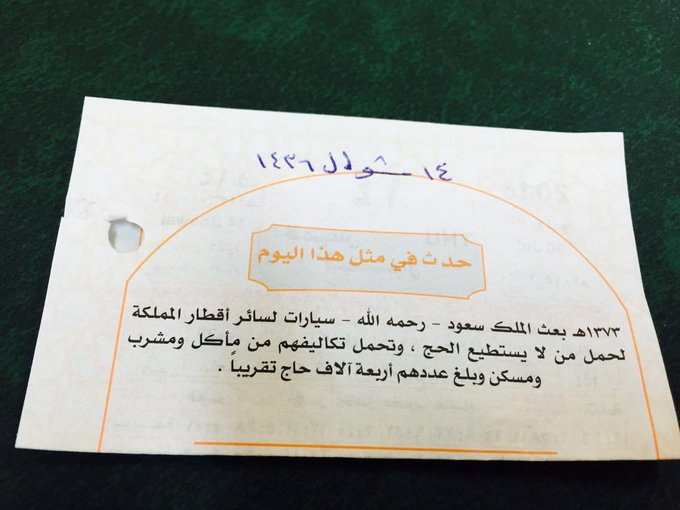 ١٤ شوال ١٤٣٦
حدث في مثل هذا اليوم
١٣٧٣هـ بعث الملك سعود - رحمه الله - سيارات لسائر أقطار المملكة
لحمل من لا يستطيع الحج ، وتحمل تكاليفهم من مأكل ومشرب
ومسكن وبلغ عددهم أربعة آلاف حاج تقريباً .